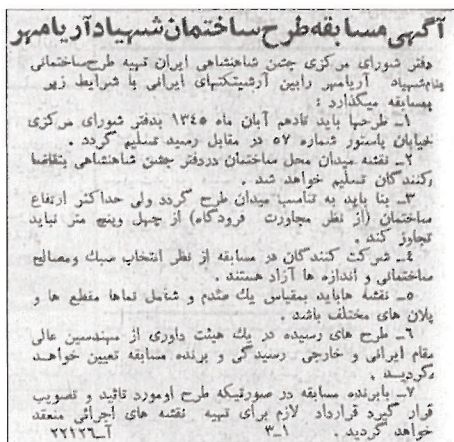 آگهی مسابقه طرح ساختمان شهیاد آریامهر
دفتر شورای مرکزی جشن شاهنشاهی ایران تهیه طرح ساختمانی
بنام شهیاد آریامهر رابین آرشیتکتهای ایرانی با شرایط زیر
بمسابقه میگذارد :
۱ـ طرحها باید تادهم آبان ماه ۱۳٤۵ بدفتر شورای مرکزی
خیابان پاستور شماره ۵۷ در مقابل رسید تسلیم گردد .
۲ـ نقشه میدان محل ساختمان دردفتر جشن شاهنشاهی بتقاضا
کنندگان تسلیم خواهد شد .
۳ـ بنا باید به تناسب میدان طرح گردد ولی حداکثر ارتفاع
ساختمان (از نظر مجاورت فرودگاه) از چهل وپنج متر نباید
تجاوز کند .
٤ـ شرکت کنندگان در مسابقه از نظر انتخاب سبک ومصالح
ساختمانی و اندازه ها آزاد هستند .
۵ـ نقشه هاباید بمقیاس یک صدم و شامل نماها مقطع ها و
پلان های مختلف باشد .
۶ـ طرح های رسیده در یک هیئت داوری از مهندسین عالی
مقام ایرانی و خارجی رسیدگی و برنده مسابقه تعیین خواهد
گردید .
۷ـ بابرنده مسابقه در صورتیکه طرح اومورد تائید و تصویب
قرار گیرد قرارداد لازم برای تهیه نقشه های اجرائی منعقد
خواهد گردید . ۱ـ۳ آـ۲۲۱۲۶